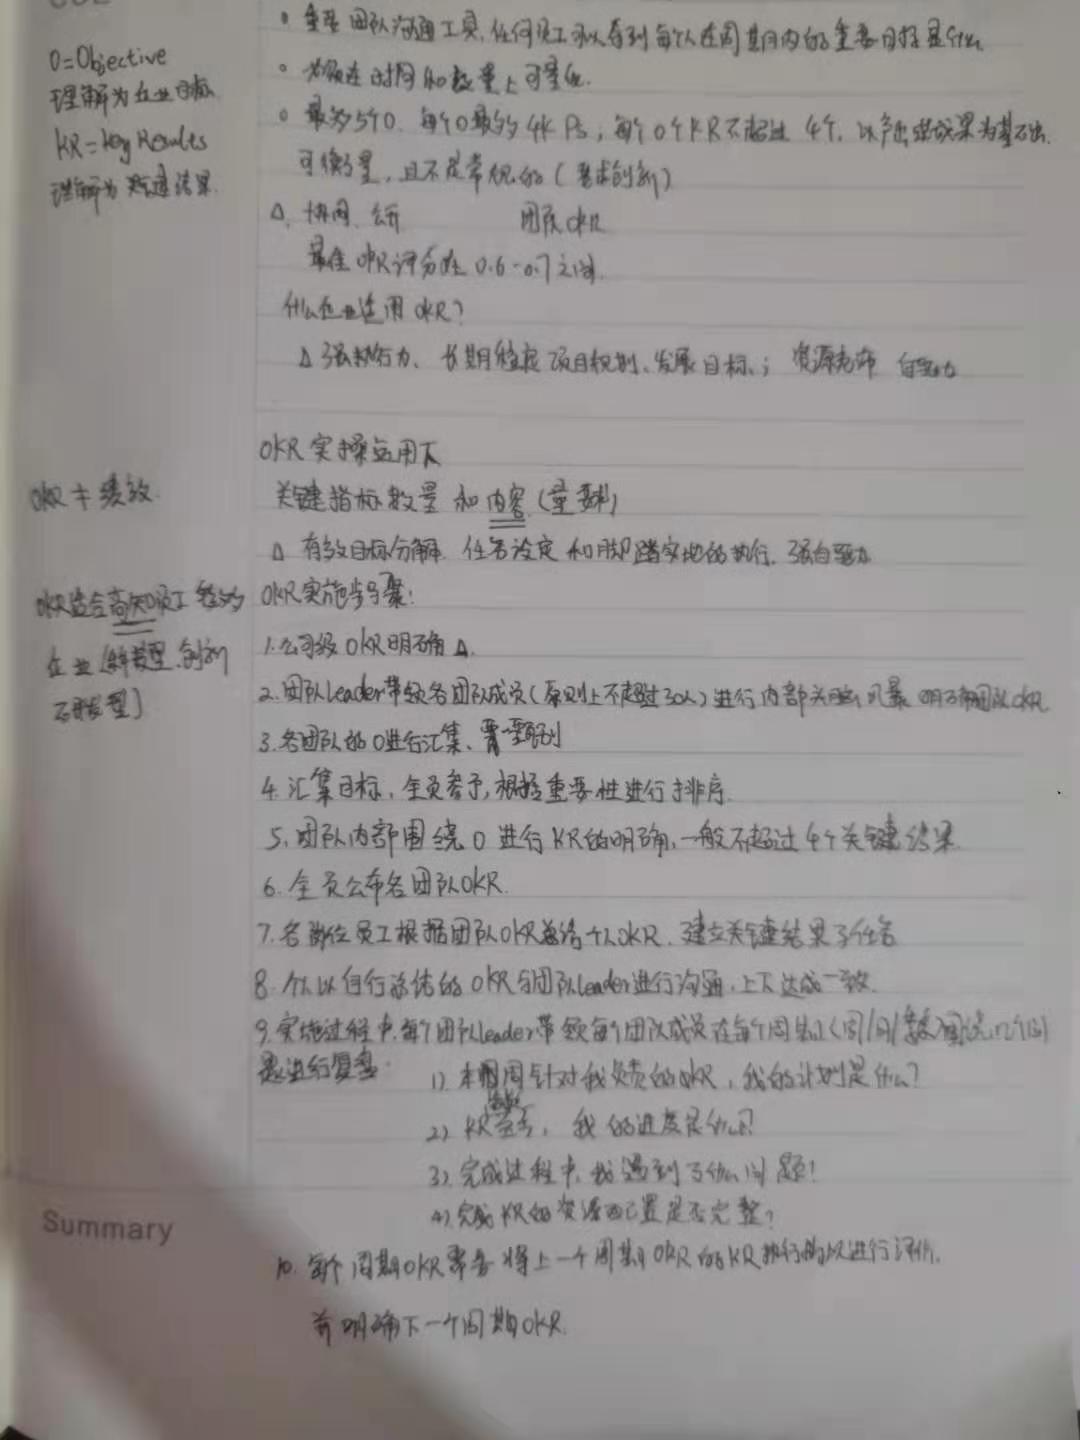 O=Objective
理解为企业目标
KR=Key Results
理解为关键结果
。重要团队沟通工具,任何员工可以看到每个人在周期内的重要目标是什么
。必须在时间和数量上可量化.
。最多5个O,每个O最多4KRs;每个O个KR不超过4个,以产出或成果为基础出
可衡量,且不是常规的(要求创新)
△.协同、公开 团队OKR
最佳OKR评分在0.6-0.7之间.
什么企业适用OKR?
△强执行力、长期稳定项目规划、发展目标;资源充沛 自驱力
OKR实操运用下
OKR≠绩效.
关键指标数量和内容(量
△ 有效目标分解.任务设定和脚踏实地的执行.强自驱力
OKR适合高知员工较多
企业
OKR实施步骤:
1.公司级OKR明确△.
2.团队Leader带领各团队成员(原则上不超过30人)进行内部头脑风暴 明确团队OKR
3.各团队的O进行汇集、甄别
4.汇集目标,全员参予,根据重要性进行排序.
5.团队内部围绕O进行KR的明确,一般不超过4个关键结果.
6.全员公布各团队OKR.
7.各岗位员工根据团队OKR总结个人OKR.建立关键结果子任务
8.个人以自行总结的OKR与团队leader进行沟通,上下达成一致.
9.实施过程中,每个团队leader带领每个团队成员在每个周期(周/月/季度)
进行复盘.
1).本周针对我负责的OKR,我的计划是什么?
2) KR 我的进度是什么?
3).完成过程中,我遇到了什么问题!
4).完成KR的资源配置是否完整?
Summary
10.每个周期OKR需要将上一个周期OKR的KR执行情况进行评估.
并明确下一个周期OKR.